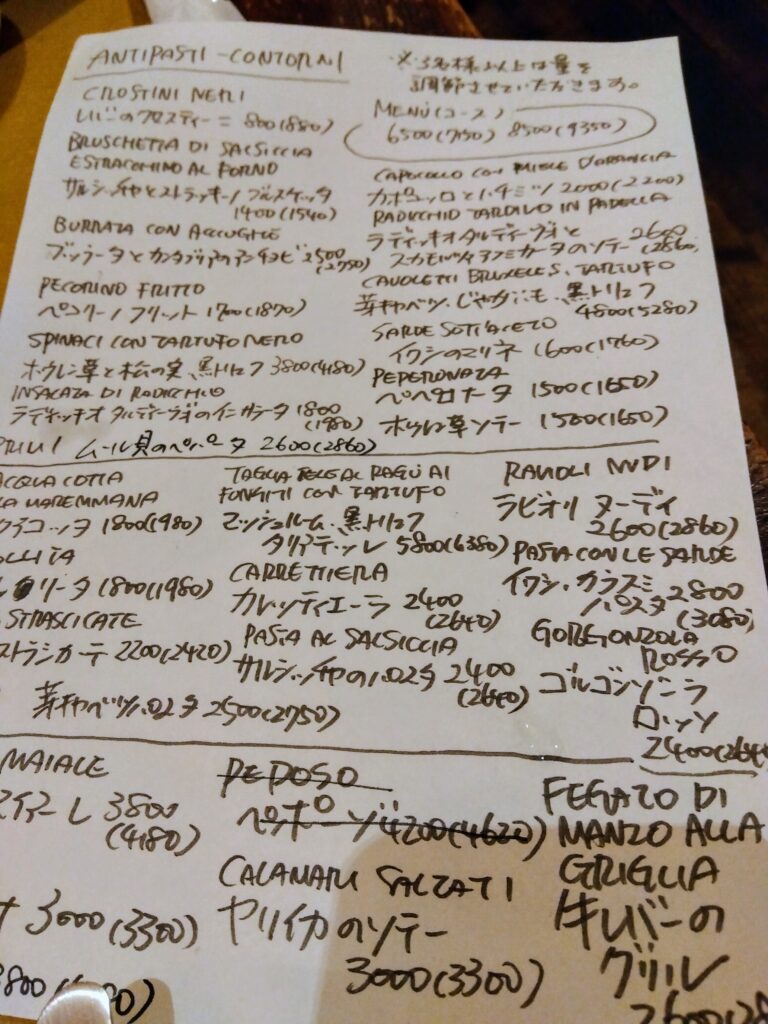 ANTIPASTI - CONTORNI
※3名様以上は量を
調節させていただきます。
CROSTINI NERI
レバーのクロスティーニ 800(880)
BRUSCHETTA DI SALSICCIA
ESTRACCHINO AL FORNO
サルシッチャとストラッキーノ ブルスケッタ
1400(1540)
BURRATA CON ACCIUGHE
ブッラータとカンタブリアのアンチョビ 2500
(2750)
PECORINO FRITTO
ペコリーノフリット 1700(1870)
SPINACI CON TARTUFO NERO
ホウレン草と松の実、黒トリュフ 3800(4180)
INSALATA DI RADICCHIO
ラディッキオ タルディーヴォのインサラータ 1800
(1980)
ムール貝のペパータ 2600(2860)
MENU(コース)
6500(7150) 8500(9350)
CAPOCOLLO CON MIELE D'ARANCIA
カポコッロとハチミツ 2000(2200)
RADICCHIO TARDIVO IN PADELLA
ラディッキオタルディーヴォと 2600
スカモルツァアフミカータのソテー (2860)
CAVOLETTI BRUXELLES, TARTUFO
芽キャベツ、じゃがいも、黒トリュフ
4800(5280)
SARDE SOTTACETO
イワシのマリネ 1600(1760)
PEPERONATA
ペペロナータ 1500(1650)
ホウレン草ソテー 1500(1650)
PRIMI
ACQUA COTTA
LA MAREMMANA
アクアコッタ 1800(1980)
リボッリータ 1800(1980)
STRASCICATE
ストラシカーテ 2200(2420)
芽キャベツパスタ 2500(2750)
TAGLIATELLE AL RAGU AI
FUNGHI CON TARTUFO
マッシュルーム、黒トリュフ
タリアテッレ 5800(6380)
CARRETTIERA
カレッティエーラ 2400
(2640)
PASTA AL SALSICCIA
サルシッチャのパスタ 2400
(2640)
RAVIOLI NUDI
ラビオリ ヌーディ
2600(2860)
PASTA CON LE SARDE
イワシ、カラスミ 2800
パスタ (3080)
GORGONZOLA
ROSSO
ゴルゴンゾーラ
ロッソ
2400(2640
MAIALE
マイアーレ 3800
(4180)
3000(3300)
PEPOSO
ペポーゾ 4200(4620)
CALAMARI SALTATI
ヤリイカのソテー
3000(3300)
FEGATO DI
MANZO ALLA
GRIGLIA
牛レバーの
グリル